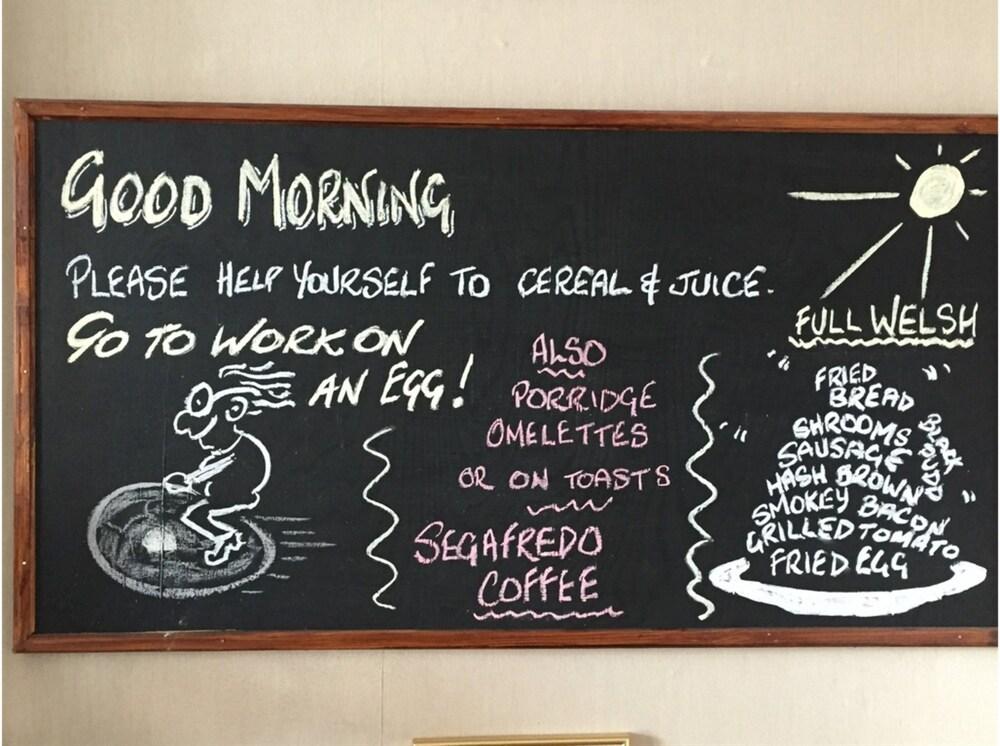 GOOD MORNING
PLEASE HELP YOURSELF TO CEREAL & JUICE.
GO TO WORK ON
AN EGG!
ALSO
PORRIDGE
OMELETTES
OR ON TOASTS
SEGAFREDO
COFFEE
FULL WELSH
FRIED
BREAD
SHROOMS
SAUSAGE
HASH BROWN
SMOKEY BACON
GRILLED TOMATO
FRIED EGG
BLACK